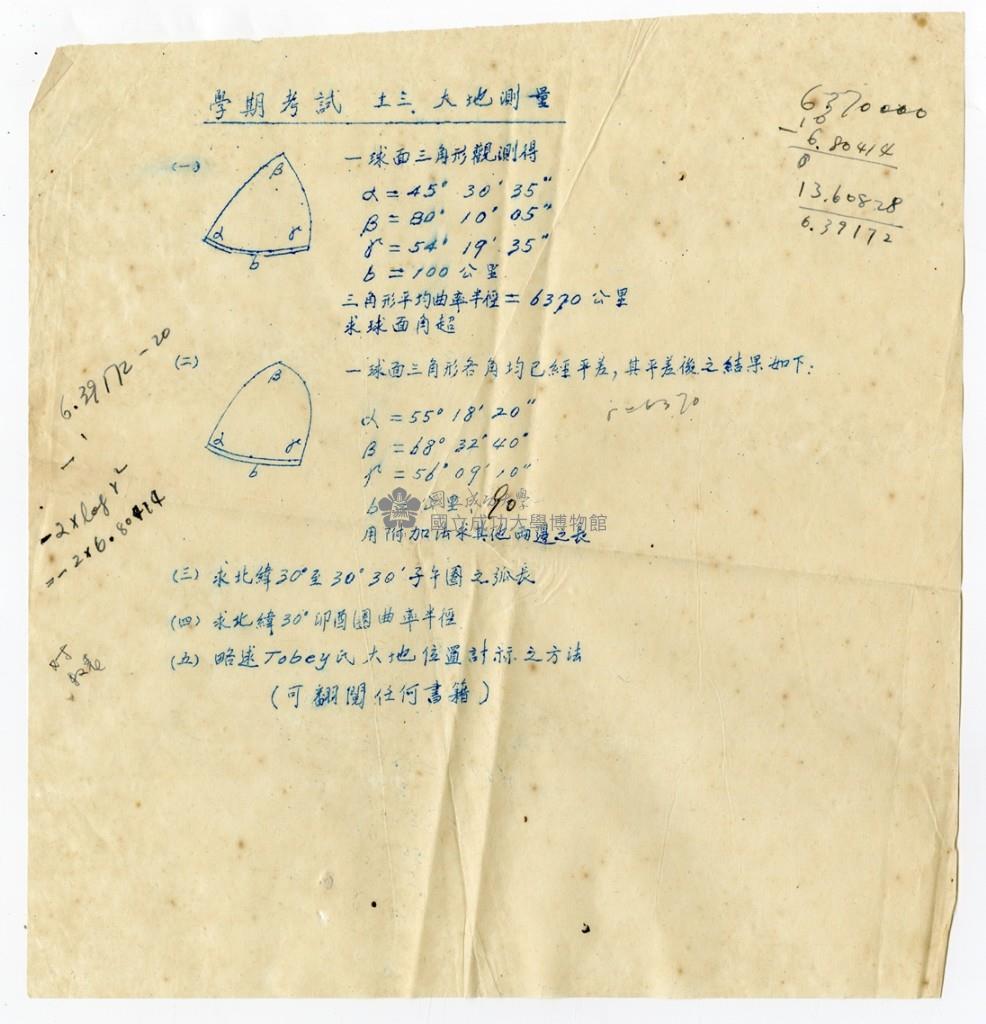 學期考試 土三. 大地測量
6370000
10
-6.80414
0
13.60828
6.39172
(一)
β
α
γ
b
一球面三角形觀測得
α = 45° 30' 35"
β = 80° 10' 05"
γ = 54° 19' 35"
b = 100 公里
三角形平均曲率半徑 = 6370 公里
求球面角超
(二)
β
α
γ
b
一球面三角形各角均已經平差, 其平差後之結果如下:
r = 6370
α = 55° 18' 20"
β = 68° 32' 40"
γ = 56° 09' 10"
b 公里 90
用附加法求其他兩邊之長
國立成功大學
國立成功大學博物館
(三) 求北緯30°至30°30'子午圈之弧長
(四) 求北緯30°卯酉圈曲率半徑
(五) 略述Tobey氏大地位置計祘之方法
(可翻閱任何書籍)
6.39172-20
-2×log r²
=-2×6.80414